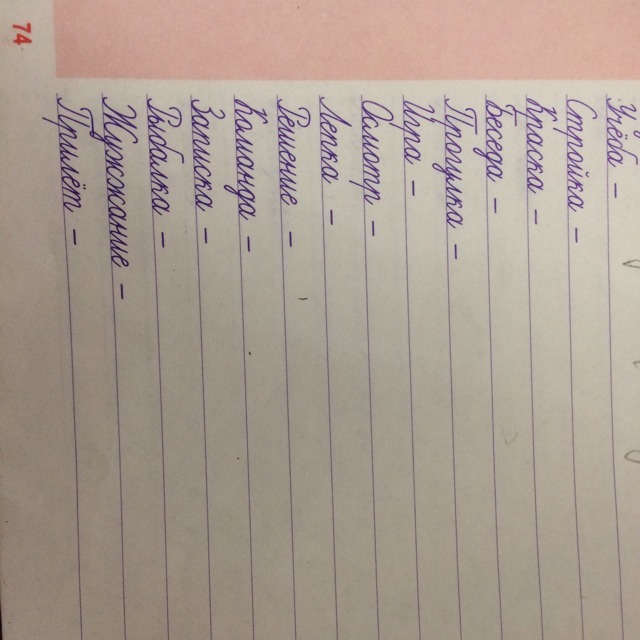 Учёба -
Стройка -
Краска -
Беседа -
Прогулка -
Игра -
Осмотр -
Лепка -
Решение -
Команда -
Записка -
Рыбалка -
Жужжание -
Прилёт -
74